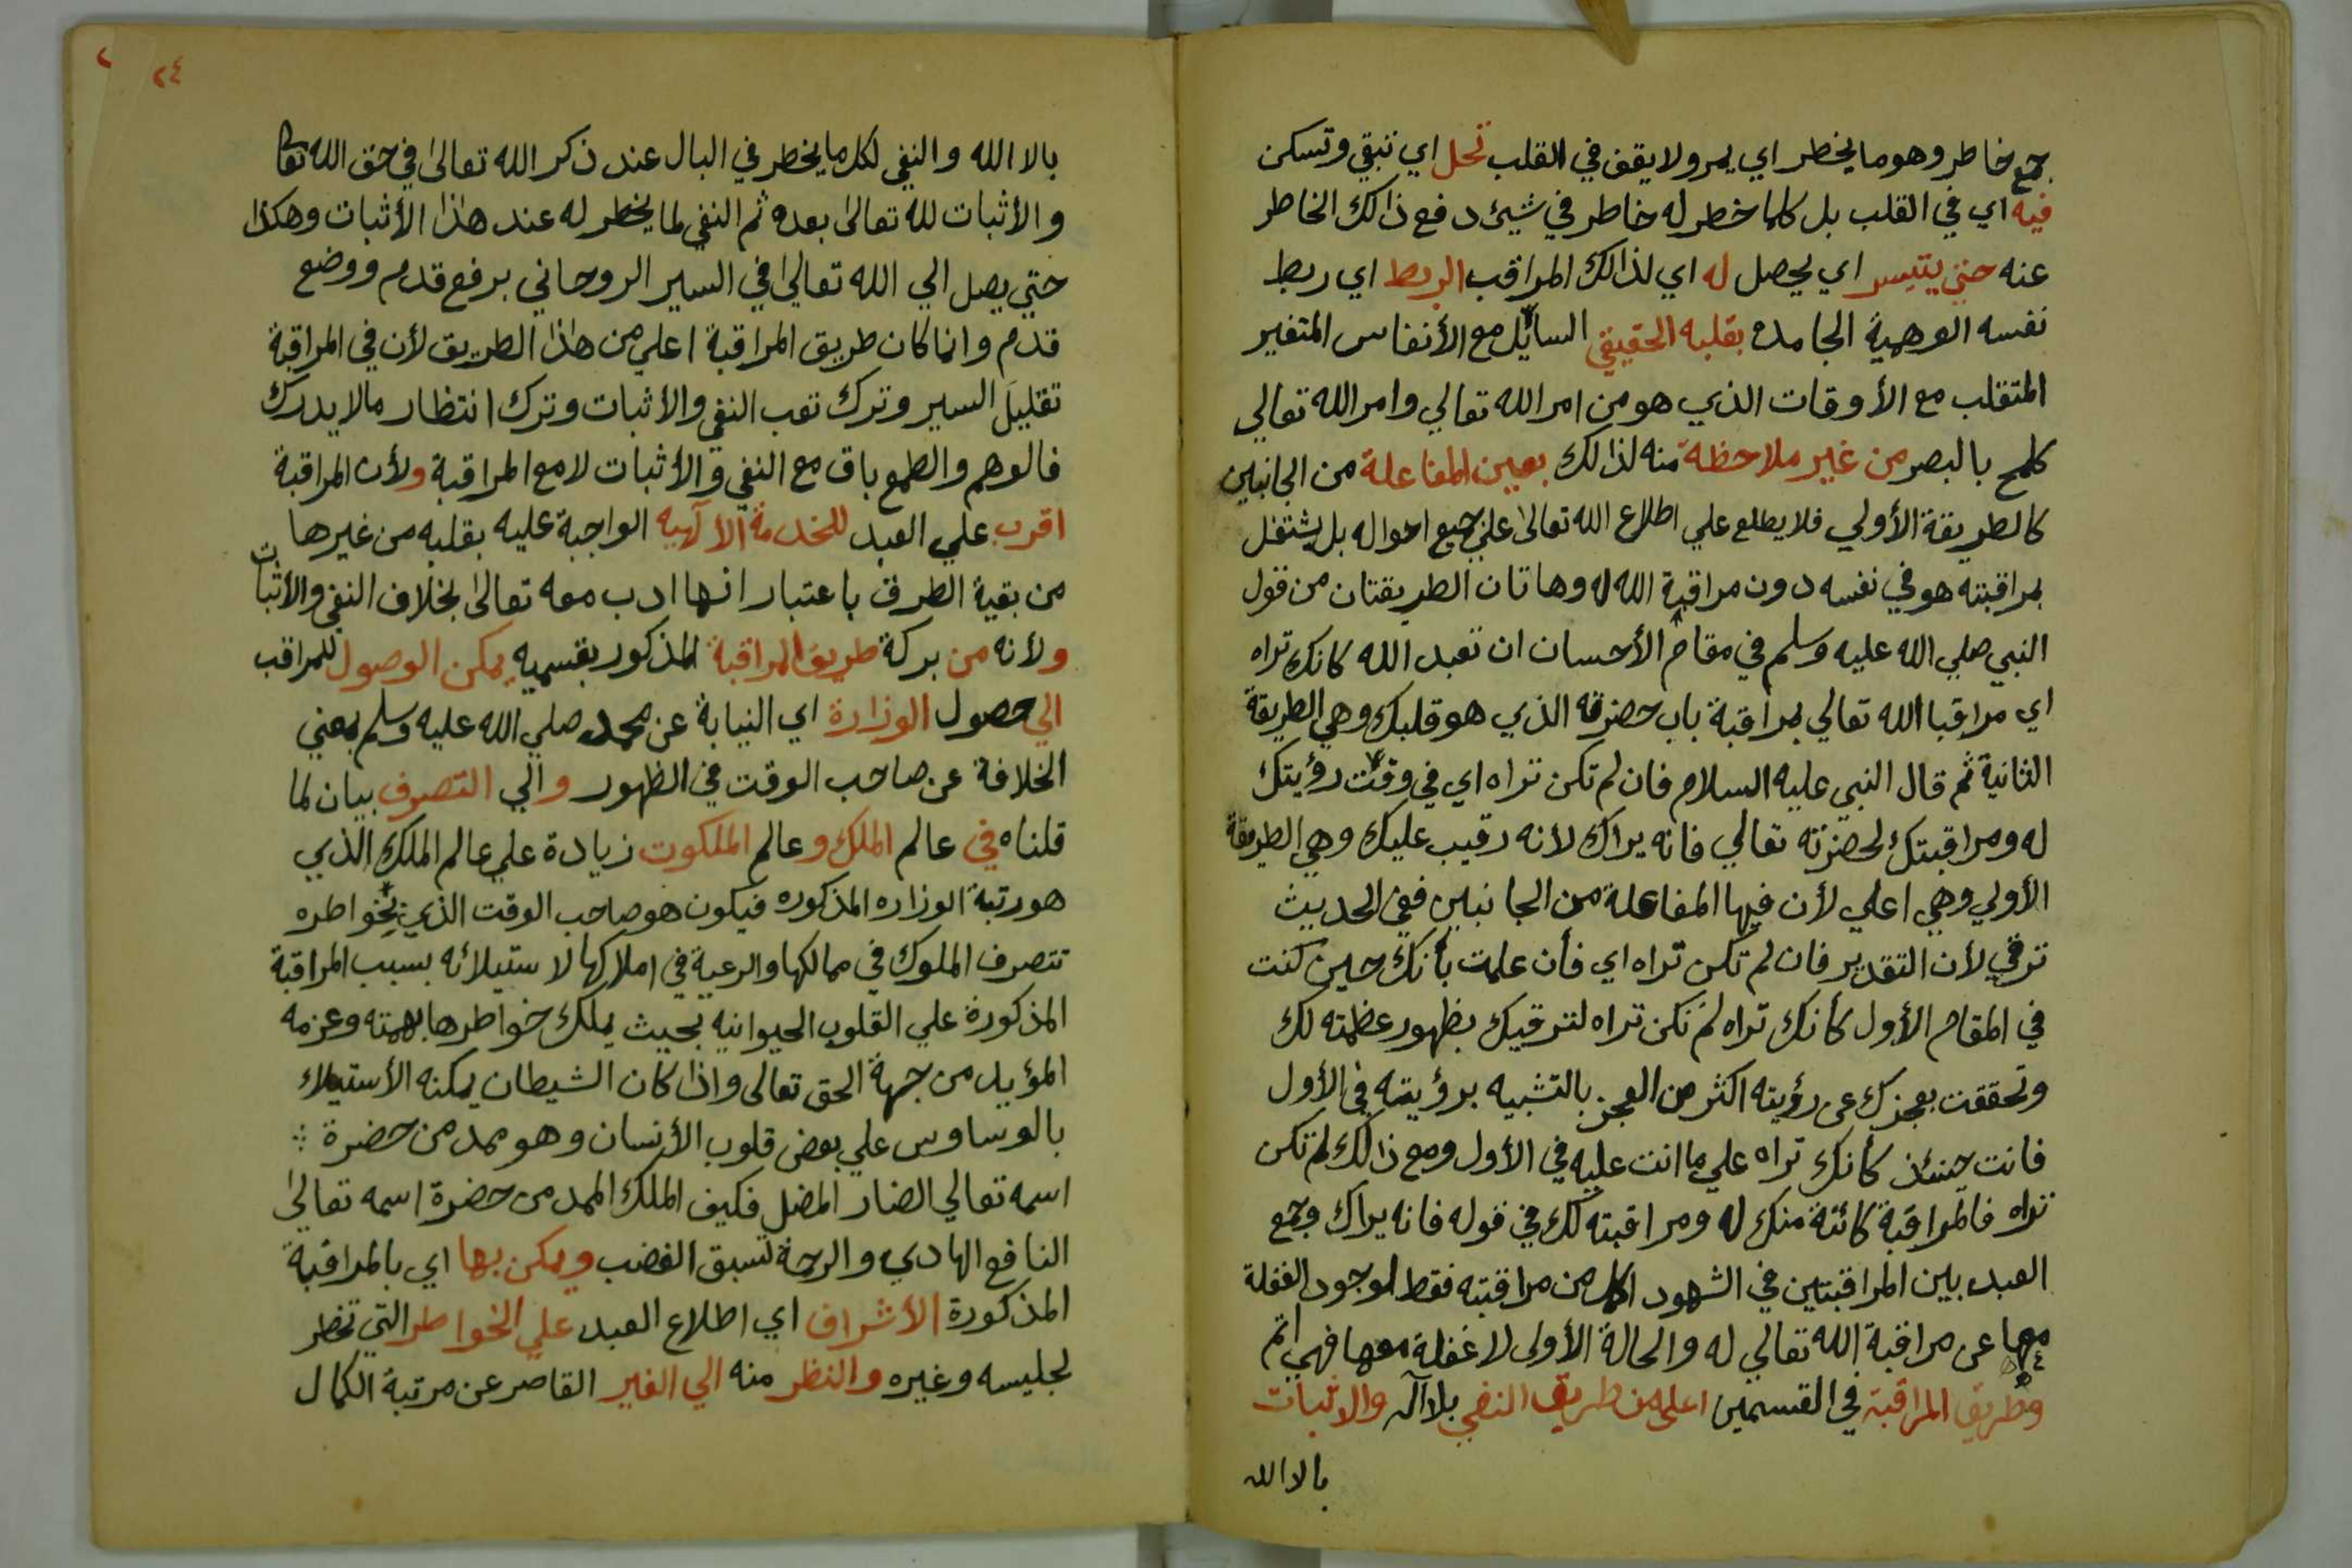 جمع خاطر وهو ما يخطر اي يمر ولا يقف في القلب تحل اي تبقي وتسكن
فيه اي في القلب بل كلما خطر له خاطر في شيئ دفع ذالك الخاطر
عنه حتي يتيسر اي يحصل له اي لذالك المراقب الربط اي ربط
نفسه الوهمية الجامدة بقلبه الحقيقي السايل مع الأنفاس المتغير
المتقلب مع الأوقات الذي هو من امر الله تعالي وامر الله تعالي
كلمح بالبصر من غير ملاحظة منه لذالك بعين المفاعلة من الجانبين
كالطريقة الأولي فلا يطلع علي اطلاع الله تعالى علي جميع احواله بل يشتغل
بمراقبته هو في نفسه دون مراقبة الله له وهاتان الطريقتان من قول
النبي صلي الله عليه وسلم في مقام الأحسان ان تعبد الله كانك تراه
اي مراقبا الله تعالي بمراقبة باب حضرته الذي هو قلبك وهي الطريقة
الثانية ثم قال النبي عليه السلام فان لم تكن تراه اي في وقت رؤيتك
له ومراقبتك لحضرته تعالي فانه يراك لأنه رقيب عليك وهي الطريقة
الأولي وهي اعلي لأن فيها المفاعلة من الجانبين ففي الحديث
ترقي لأن التقدير فان لم تكن تراه اي فأن علمت بأنك حين كنت
في المقام الأول كأنك تراه لم تكن تراه لترقيك بظهور عظمته لك
وتحققت بعجزك عن رؤيته اكثر من العجز بالتشبيه برؤيته في الأول
فانت حينئذ كأنك تراه علي ما انت عليه في الأول ومع ذالك لم تكن
تراه فالمراقبة كائنة منك له ومراقبته لك في قوله فانه يراك وجمع
العبد بين المراقبتين في الشهود اكمل من مراقبته فقط لوجود الغفلة
معها عن مراقبة الله تعالي له والحالة الأولى لا غفلة معها فهي اتم
وطريق المراقبة في القسمين اعلى من طريق النفي بلا آله والاثبات
بالا الله
٢٤
بالا الله والنفي لكل ما يخطر في البال عند ذكر الله تعالى في حق الله تعا
والأثبات لله تعالى بعده ثم النفي لما يخطر له عند هاذا الأثبات وهكذا
حتي يصل الي الله تعالى في السير الروحاني برفع قدم ووضع
قدم وانما كان طريق المراقبة اعلي من هاذا الطريق لأن في المراقبة
تقليل السير وترك تعب النفي والأثبات وترك انتظار مالا يدرك
فالوهم والطمع باق مع النفي والأثبات لا مع المراقبة ولأن المراقبة
اقرب علي العبد للخدمة الألهيه الواجبة عليه بقلبه من غيرها
من بقية الطرق باعتبار انها ادب معه تعالى بخلاف النفي والأثبات
ولأنه من بركة طريق المراقبة المذكور بقسميه يمكن الوصول للمراقب
الي حصول الوزارة اي النيابة عن محمد صلي الله عليه وسلم بمعني
الخلافة عن صاحب الوقت في الظهور والي التصرف بيان لما
قلناه في عالم الملك وعالم الملكوت زيادة علي عالم الملك الذي
هو رتبة الوزاره المذكوره فيكون هو صاحب الوقت الذي بخواطره
تتصرف الملوك في ممالكها والرعية في املاكها لاستيلائه بسبب المراقبة
المذكورة علي القلوب الحيوانيه بحيث يملك خواطرها بهمته وعزمه
المؤيد من جهة الحق تعالى واذا كان الشيطان يمكنه الأستيلاء
بالوساوس علي بعض قلوب الأنسان وهو ممد من حضرة
اسمه تعالي الضار المضل فكيف الملك الممد من حضرة اسمه تعالى
النافع الهادي والرحمة تسبق الغضب ويمكن بها اي بالمراقبة
المذكورة الأشراف اي اطلاع العبد علي الخواطر التي تخطر
لجليسه وغيره والنظر منه الي الغير القاصر عن مرتبة الكمال